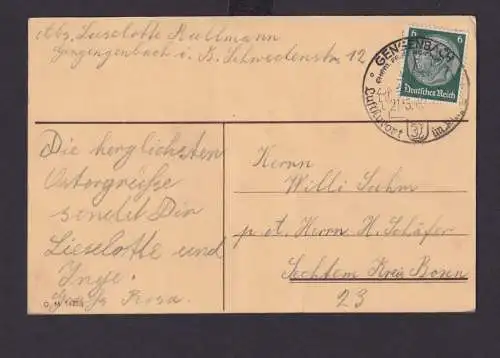 Abs. Lieselotte Kullmann
Gengenbach i. B. Schwedenstr. 12
6 6
Deutsches Reich
GENGENBACH
Luftkurort
Die herzlichsten
Ostergrüße
sendet Dir
Lieselotte und
Inge.
Rosa.
Herrn
Willi Suhm
p. A. Herrn H. Schäfer
Sechtem Kreis Bonn
23